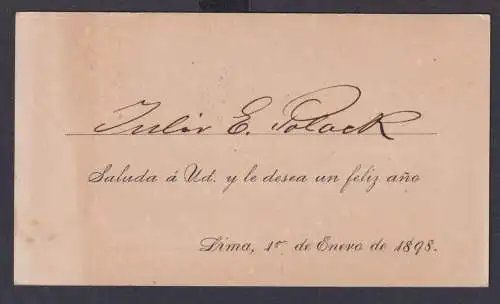 Julio E. Polack
Saluda á Ud. y le desea un feliz año
Lima, 1º de Enero de 1898.